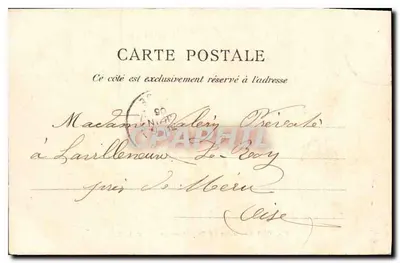 CARTE POSTALE
Ce côté est exclusivement réservé à l'adresse
Madame Valéry Prévoté
à Lavilleneuve Le Roy
près de Méru
Oise